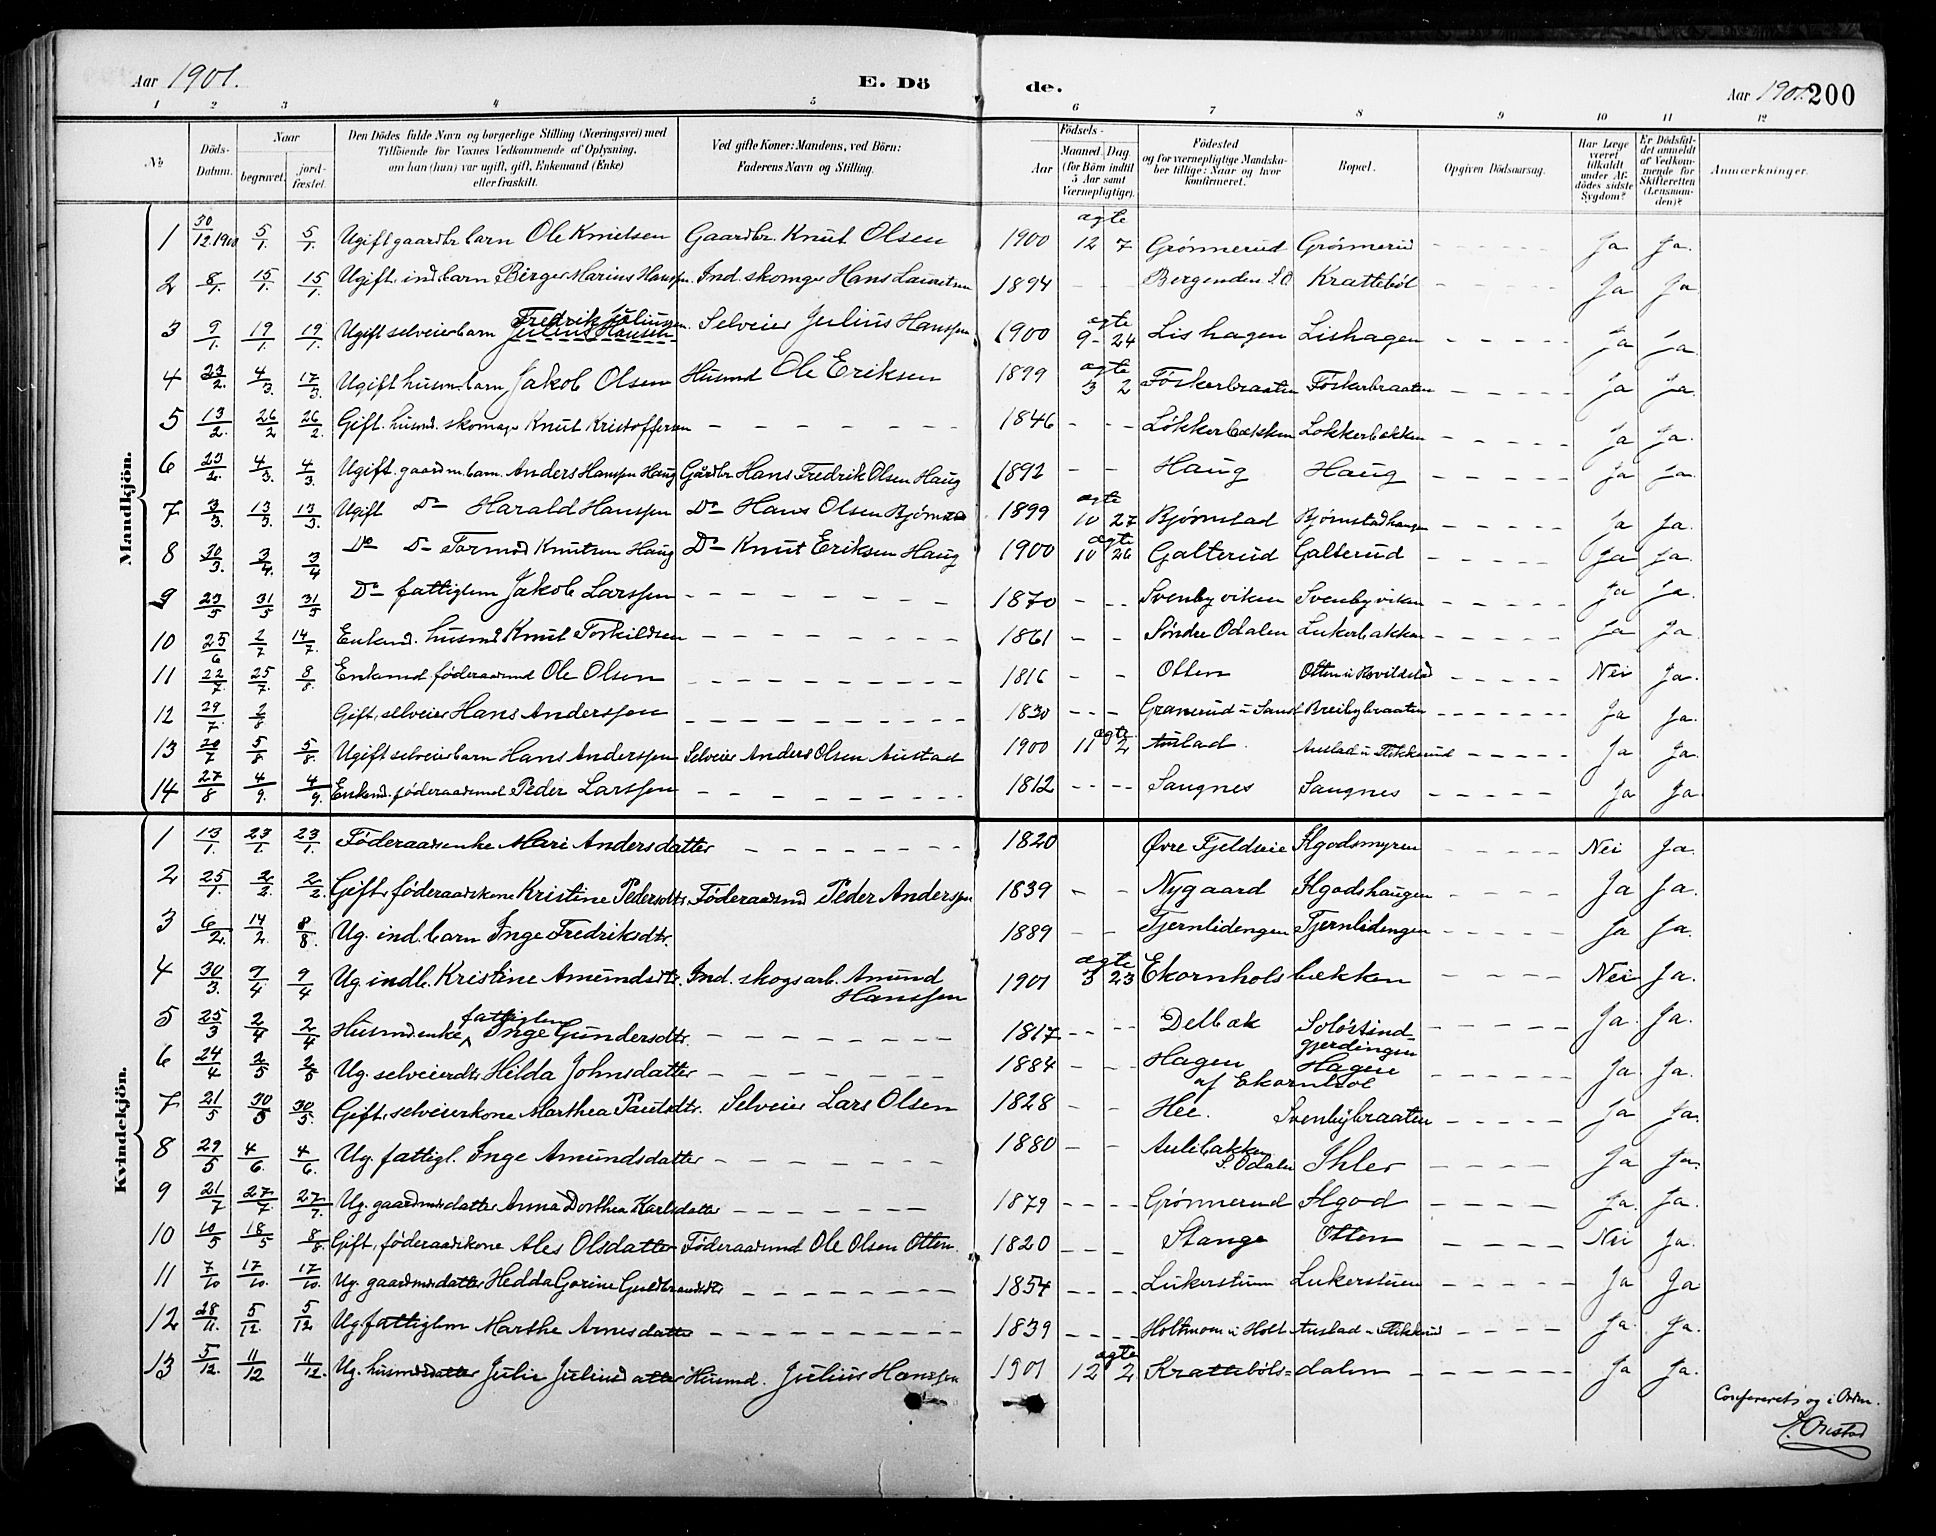 Aar 1901. E. Dö de. Aar 1901. 200
1 2 3 4 5 6 7 8 9 10 11 12
№ Döds-Datum. Naar begravet. jord-fæstet. Den Dödes fulde Navn og borgerlige Stilling (Næringsvei) med Tilföiende for Voxnes Vedkommende af Oplysning, om han (hun) var ugift, gift, Enkemand (Enke) eller fraskilt. Ved gifte Koner: Mandens, ved Börn: Faderens Navn og Stilling. Födsels- Aar Maaned. Dag (for Börn indtil 5 Aar samt Værnepligtige). Födested og for værnepligtige Mandskaber tillige: Naar og hvor konfirmeret. Bopæl. Opgiven Dödsaarsag. Har Læge været tilkaldt under Afdödes sidste Sygdom? Er Dödsfaldet anmeldt af Vedkommende for Skifteretten (Lensmanden)? Anmærkninger.
Mandkjön.
1 30/12.1900 5/1. 5/1. Ugift gaardbr. barn Ole Knutsen Gaardbr. Knut Olsen 1900 ægte 12 7 Grönnerud Grönnerud - - - - - Ja Ja.
2 8/1. 15/1. 15/1. Ugift. ind. barn Birger Marius Hanssen Ind. skomager Hans Lauritsen 1894 - - Bergenden S.O Krattebøl - - - - - Ja Ja
3 9/1. 19/1. 19/1. Ugift selveierbarn Fredrik Juliussen Julius Hansen Selveier Julius Hanssen 1900 ægte 9 - 24 Lishagen Lishagen - - - - - Ja Ja
4 23/2. 4/3. 17/3. Ugift husm. barn Jakob Olsen Husmd Ole Eriksen 1899 ægte 3 2 Föskerbraaten Föskerbraaten - - - - Ja Ja
5 13/2. 26/2 26/2. Gift. husmd. skomager Knut Kristoffersen - - - - - 1846 - - - Løkkerbakken Lokkerbakken - - - - - Ja Ja.
6 23/2. 4/3. 4/3. Ugift. gaardm. barn. Anders Hanssen Haug Gårdbr Hans Fredrik Olsen Haug 1892 - - Haug Haug - - - - - Ja Ja
7 3/3. 13/3. 13/3. Ugift Do Harald Hanssen Do Hans Olsen 1899 ægte 10 27 Bjørnstad Bjørnstadhaugen - - - - - Ja Ja.
8 30/3. 3/4. 3/4 Do Do Tormod Knutsen Haug Do Knut Eriksen Haug 1900 ægte 10 26 Galterud Galterud - - - - - Ja Ja.
9 23/5 31/5 31/5 Do fattiglem Jakob Larssen - - - - - - 1870 - - - Svenbyviken Svenbyviken - - - - - Ja Ja.
10 25/6 2/7 14/7. Enkemd. husmd Knut Torkildsen - - - - - - 1861 - - Søndre Odalen Lukerbakken - - - - - Ja Ja
11 22/7. 25/7. 8/8. Enkemd. föderaadsmd Ole Olsen - - - - - - 1816 - - Otten - - - - - Nei Ja.
12 29/7. 2/8 Gift, selveier Hans Anderssen - - - - - - 1830 - - - Breibybraaten - - - - - Ja Ja.
13 5/8 5/8. Ugift selveierbarn Hans Anderssen Selveier Anders Olsen Austad 1900 11 ægte 2 Austad. Austad u Flikkerud Ja Ja.
14 27/8 4/9. 4/9. Enkemd. föderaadsmd Peder Larssen - - - - - - 1812 - - - - Saugnes Saugnes - - - - - Ja Ja.
Kvindekjön.
1 13/1. 23/1. 23/1. Föderaadsenke Mari Andersdatter - - - - - - 1820 Øvre Fjeldseie Ilgodsmyren - - - - - Nei Ja.
2 25/1. 2/2. 2/2. Gift. föderaadskone Kristine Pedersdtr. Föderaadsmd Peder Anderssen 1839 - - Nygaard Ilgodshaugen - - - - Ja Ja.
3 6/2. 14/2. 8/8. Ug. ind. barn Inge Fredriksdtr. 1889 - - Tjernlidengen Tjernlidengen - - - - - Ja Ja.
4 30/3. 9/4 9/4 Ug. indb. Kristine Amundsdtr. Ind. skogsarb. Amund Hanssen 1901 ægte 3 23 Ekornholsbækken Nei Ja.
5 25/3 2/4 2/4 Husmdenke fattiglem Inge Gundersdtr. - - - - - 1817 - - - - Delbæk Solörsindgjerdingen - - - - - Ja. Ja.
6 24/4 2/5 2/5 Ug. selveierdtr Hilda Johnsdatter - - - - - 1884 - - - Hagen Hagen af Ekornhol - - - - - Ja Ja.
7 21/5 30/5 30/5. Gift. selveierkone Marthea Paulsdtr. Selveier Lars Olsen 1828 - - Hee. Svenbybraaten - - - - - Ja Ja.
8 29/5 4/6. 4/6. Ug. fattigl. Inge Amundsdatter - - - - - 1880 - - - Aulibakken S. Odalen Ihler - - - - Ja Ja.
9 21/7 27/7. 27/7. Ug. gaardmdsdatter Anna Dorthea Karlsdatter - - - - - 1879 - - - - Grönnerud Ilgod - - - - Ja. Ja.
10 10/5 18/5 8/8. Gift, föderaadskone Ales Olsdatter Föderaadsmd Ole Olsen Otten. 1820 - - - Stange Otten - - - - Nei Ja.
11 7/10 17/10. 17/10. Ug. gaardmdsdatter Hedda Gorine Guldbrandsdtr - - - - - - 1854 - - - - Lukerstuen Lukerstuen - - - - - Ja Ja
12 28/11. 5/12. 5/12 Ug. fattiglem Marthe Arnesdatter - - - - - - 1839 - - - - Holtmoen u Holt Austad u Flikkerud - - - - - Ja. Ja.
13 5/12. 11/12 11/12. Ug. husmdsdatter Julie Juliusdatter Husmd. Julius Hanssen 1901 12 ægte 2 Krattebølsdalen - - - - - Ja Ja.
Confereret og i Orden.